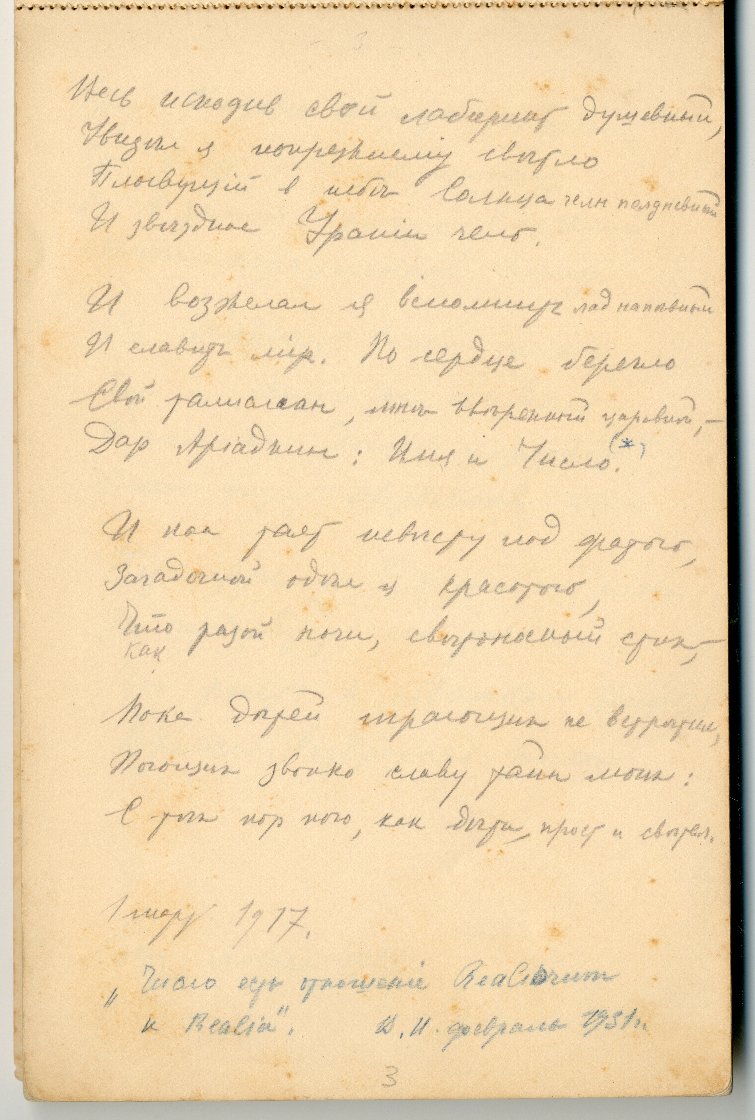 3
Весь исходив свой лабиринт душевный,
Увидѣл я попрежнему свѣтло
Плывущій в небѣ Солнца челн полдневный
И звѣздное Ураніи чело.
И возжелал я вспомнить лад напѣвный
И славить мір. Но сердце берегло
Свой талисман, мнѣ ввѣренный царевной, –
Дар Аріаднин: Имя и Число. (*)
И как невѣсту под фатою,
Загадочной одѣл я красотою,
Что
как ризой ночи, свѣтоносный стих, –
Пока дѣтей играющих не встрѣтил,
Поющих звонко славу тайн моих:
С тѣх пор пою, как дѣти, прост и свѣтел.
1917.
„Число есть отношеніе Realiorum
к Realia".    В. И. февраль 1931 г.
3